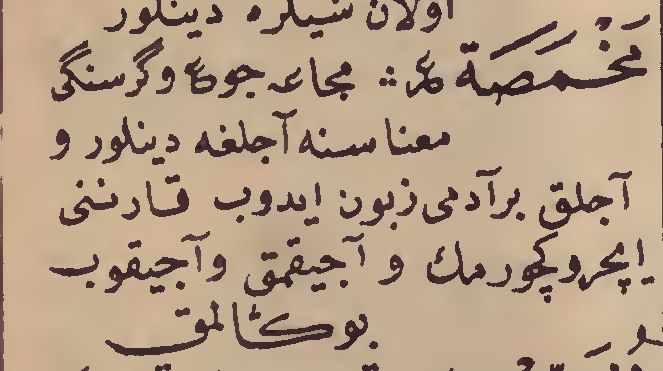 اولان شیلره دینلور
مَخْمَصَة ع : مجاعه جوع وگرسنگی
معناسنه آجلغه دینلور و
آجلق برآدمی زبون ایدوب قارننی
ایچرو کچورمك و آجیقمق و آجیقوب
بوکثالمق